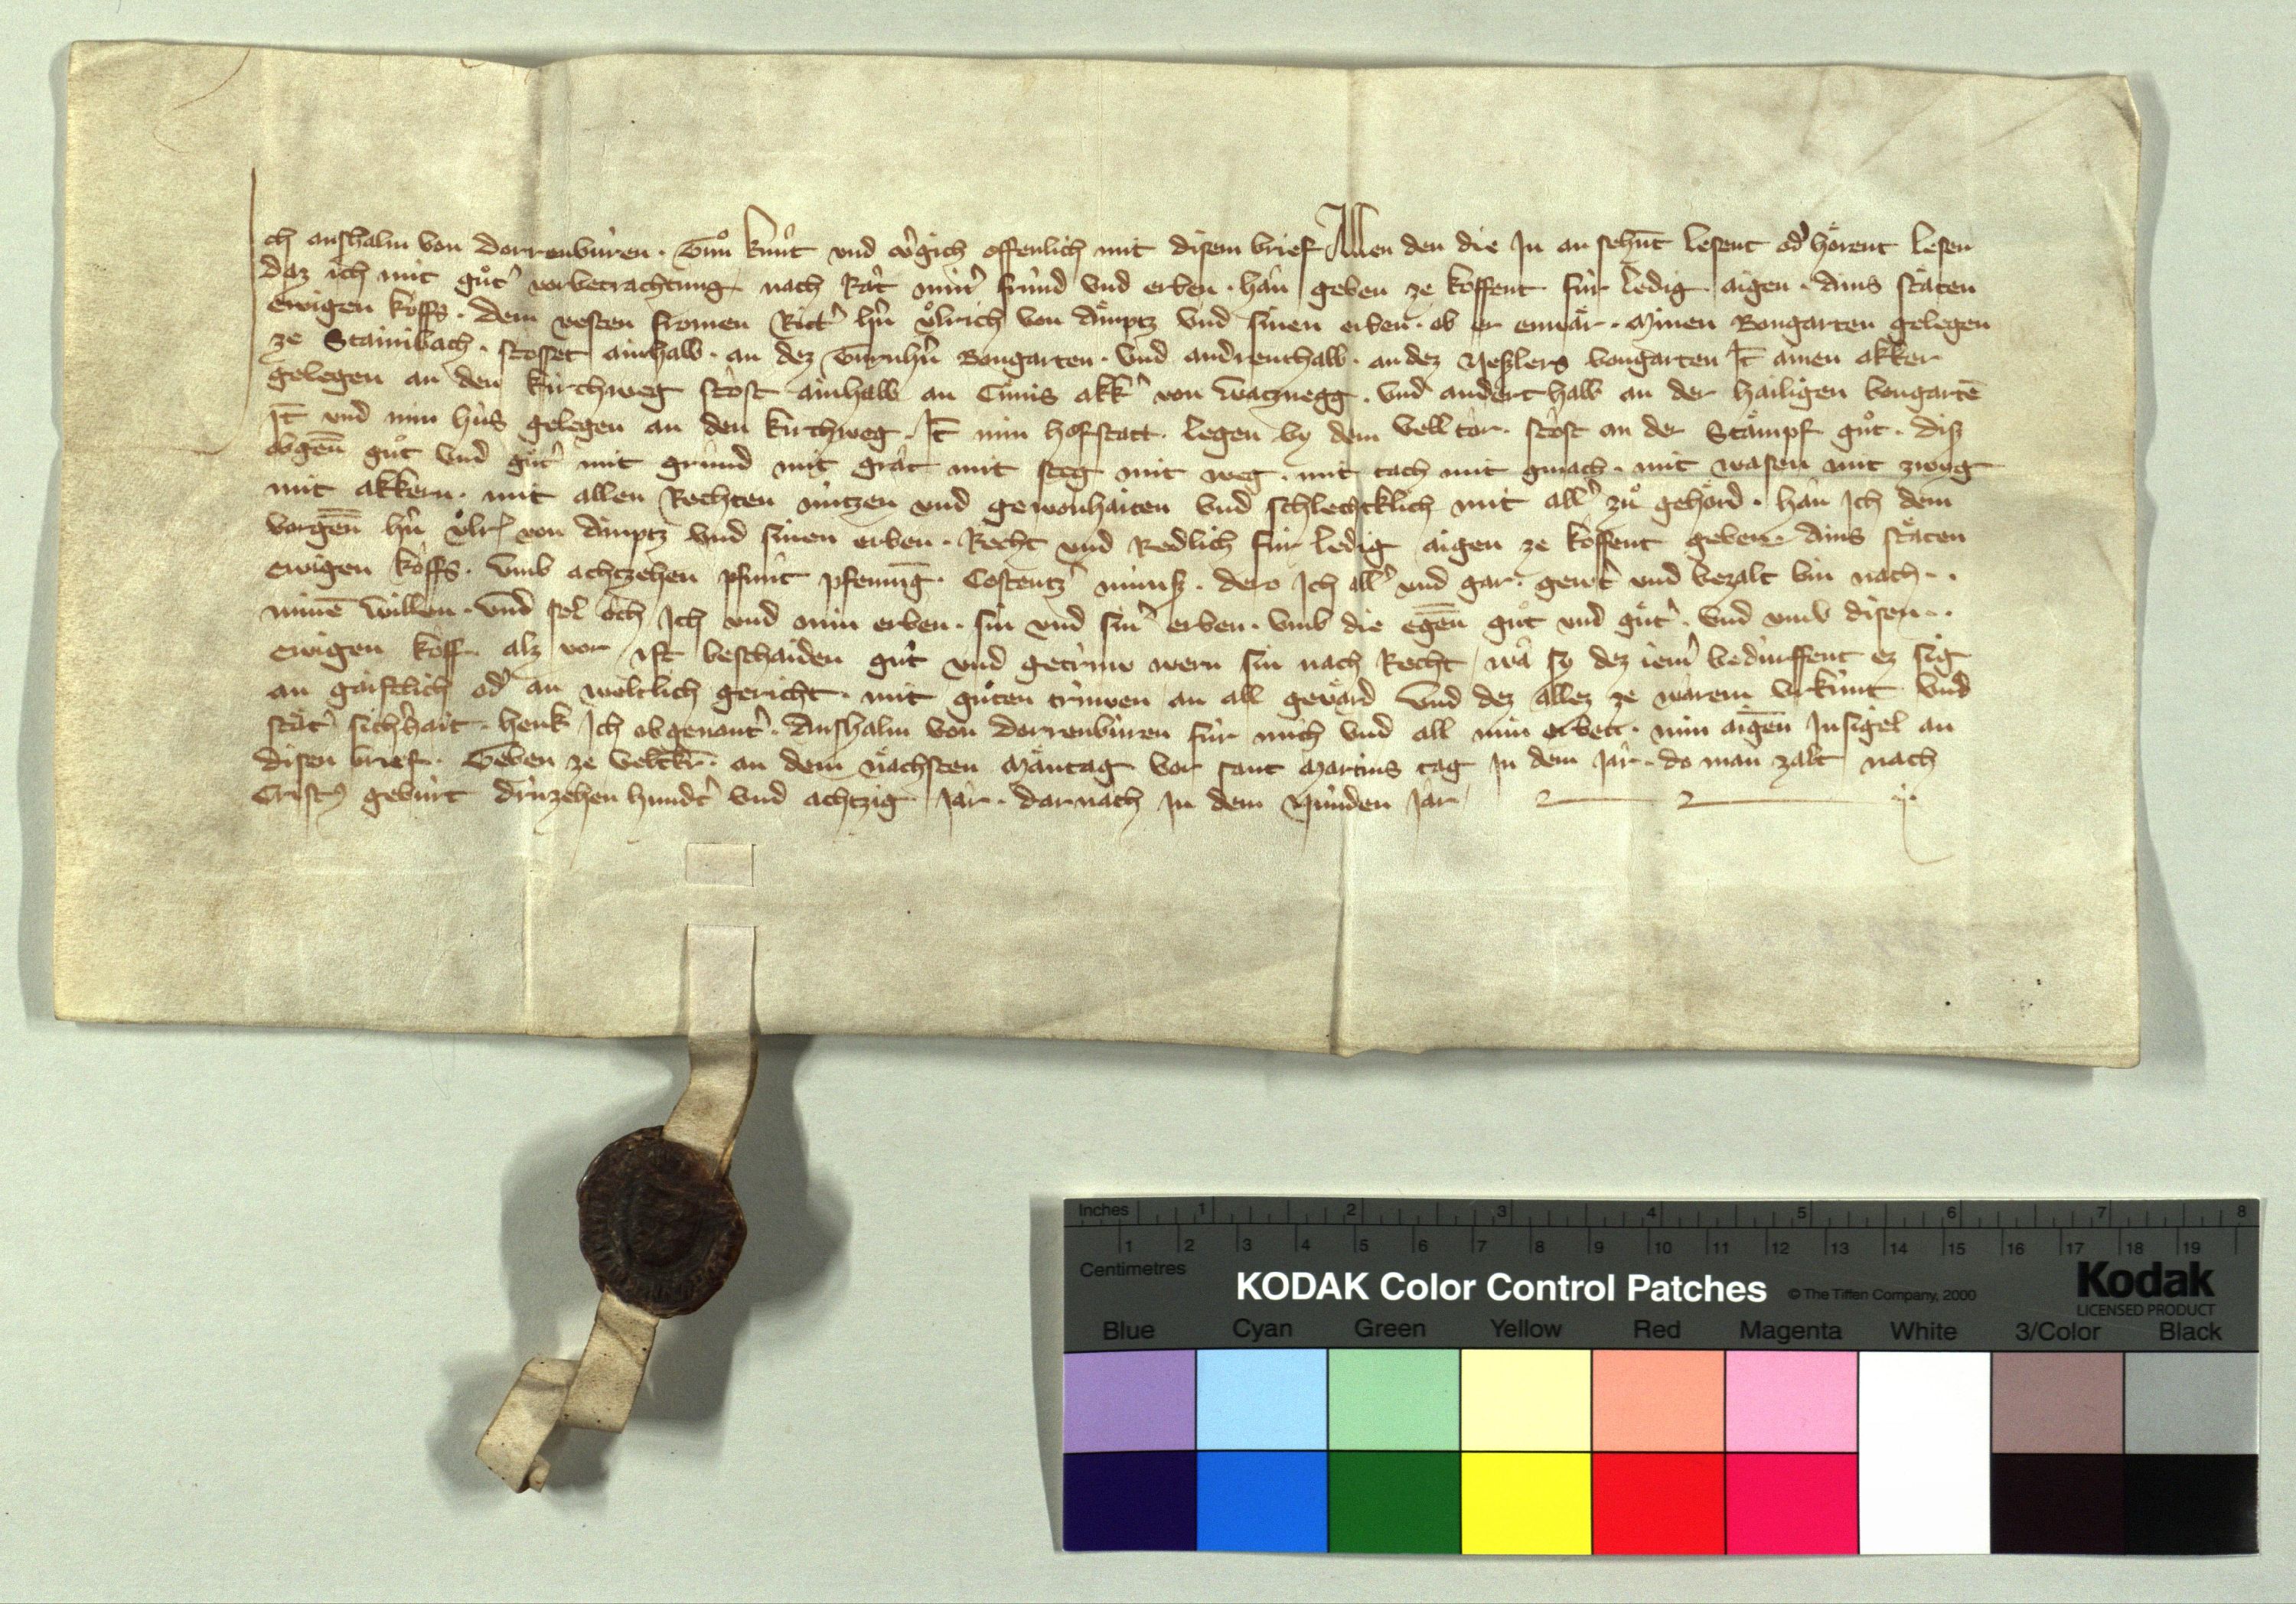 Ich anshalm von Dorrenbu̍ren. Tuͦn kunt und v̓gich offenlich mit disem brief Allen den die In an sehn̄t lesent od̓ hoͤrent lesen
daz ich mit guͦt̓ vorbetrachtung nach Rât min̓ fru̍nd und erben. hân geben ze koffent fu̍r ledig aigen. Ains staͤten
ewigen koffs. dem vesten fromen Ritt̓ hn̄ Uͦlrich von Aͤmptz und sinen erben. ob er enwaͤr. Minen Bongarten gelegen
ze Stainibach. stosset ainhalb. an dez Turnhn̄ Bongarten. und andrenthalb. an dez Neszlers bongarten It̄ ainen akker
gelegen an den kirchweg stost ainhalb an Cu̍nis akk̓ von Watznegg. und anderthalb an der hailigen bongartē
It̄ und min hûs gelegen an den kirchweg. It̄ min hofstatt. legen by dem velltor. stost an der Staͤmpf guͦt. disz
obgen̄ guͦt und guͤt̓ mit grund mit grât mit steg mit weg. mit tach mit gmach. mit wasen mit zwyg
mit akkern. mit allen Rechten nu̍tzen und gewonhaiten und schlechtklich mit all̓ zuͦ gehoͤrd. hân Ich dem
vorgen̄ hn̄ uͦlr̄ von Aͤmptz und sinen erben. Recht und Redlich fu̍r ledig aigen ze koffent geben. Ains staͤten
ewigen koffs. umb achtzehen pfunt pfennīg. Costentz̓ mu̍nsz. dero Ich all̓ und gar. gewert und bezalt bin nach..
minē willen. und sol och Ich und min erben. sin und sin̓ erben. umb die egen̄ guͦt und guͤt̓. und umb disen..
ewigen koff. alz vor ist beschaiden guͦt und getru̍w wern sin nach Recht wâ sy dez iem̓ bedu̍rffent ez sig
an gaistlich od̓ an weltlich gericht. mit guͦten tru̍wen an all gevaͤrd und dez allez ze warem urku̍nt und
staͤt̓ sich̓hait. henk Ich obgenant̓. Anshalm von Dorrenbu̍ren fu̍r mich und all min erben. min aigen̄ Insigel an
disen brief. Geben ze veltk̄r. an dem naͤchsten Maͤntag vor sant Martins tag In dem Jar. do man zalt nach
Crist⁹ geburt dru̍zehen hundt̓ und achtzig Jar. darnach In dem Nu̍nden Jar
Inches 1 2 3 4 5 6 7 8
1 2 3 4 5 6 7 8 9 10 11 12 13 14 15 16 17 18 19
Centimetres
KODAK Color Control Patches © The Tiffen Company, 2000 Kodak
LICENSED PRODUCT
Blue Cyan Green Yellow Red Magenta White 3/Color Black